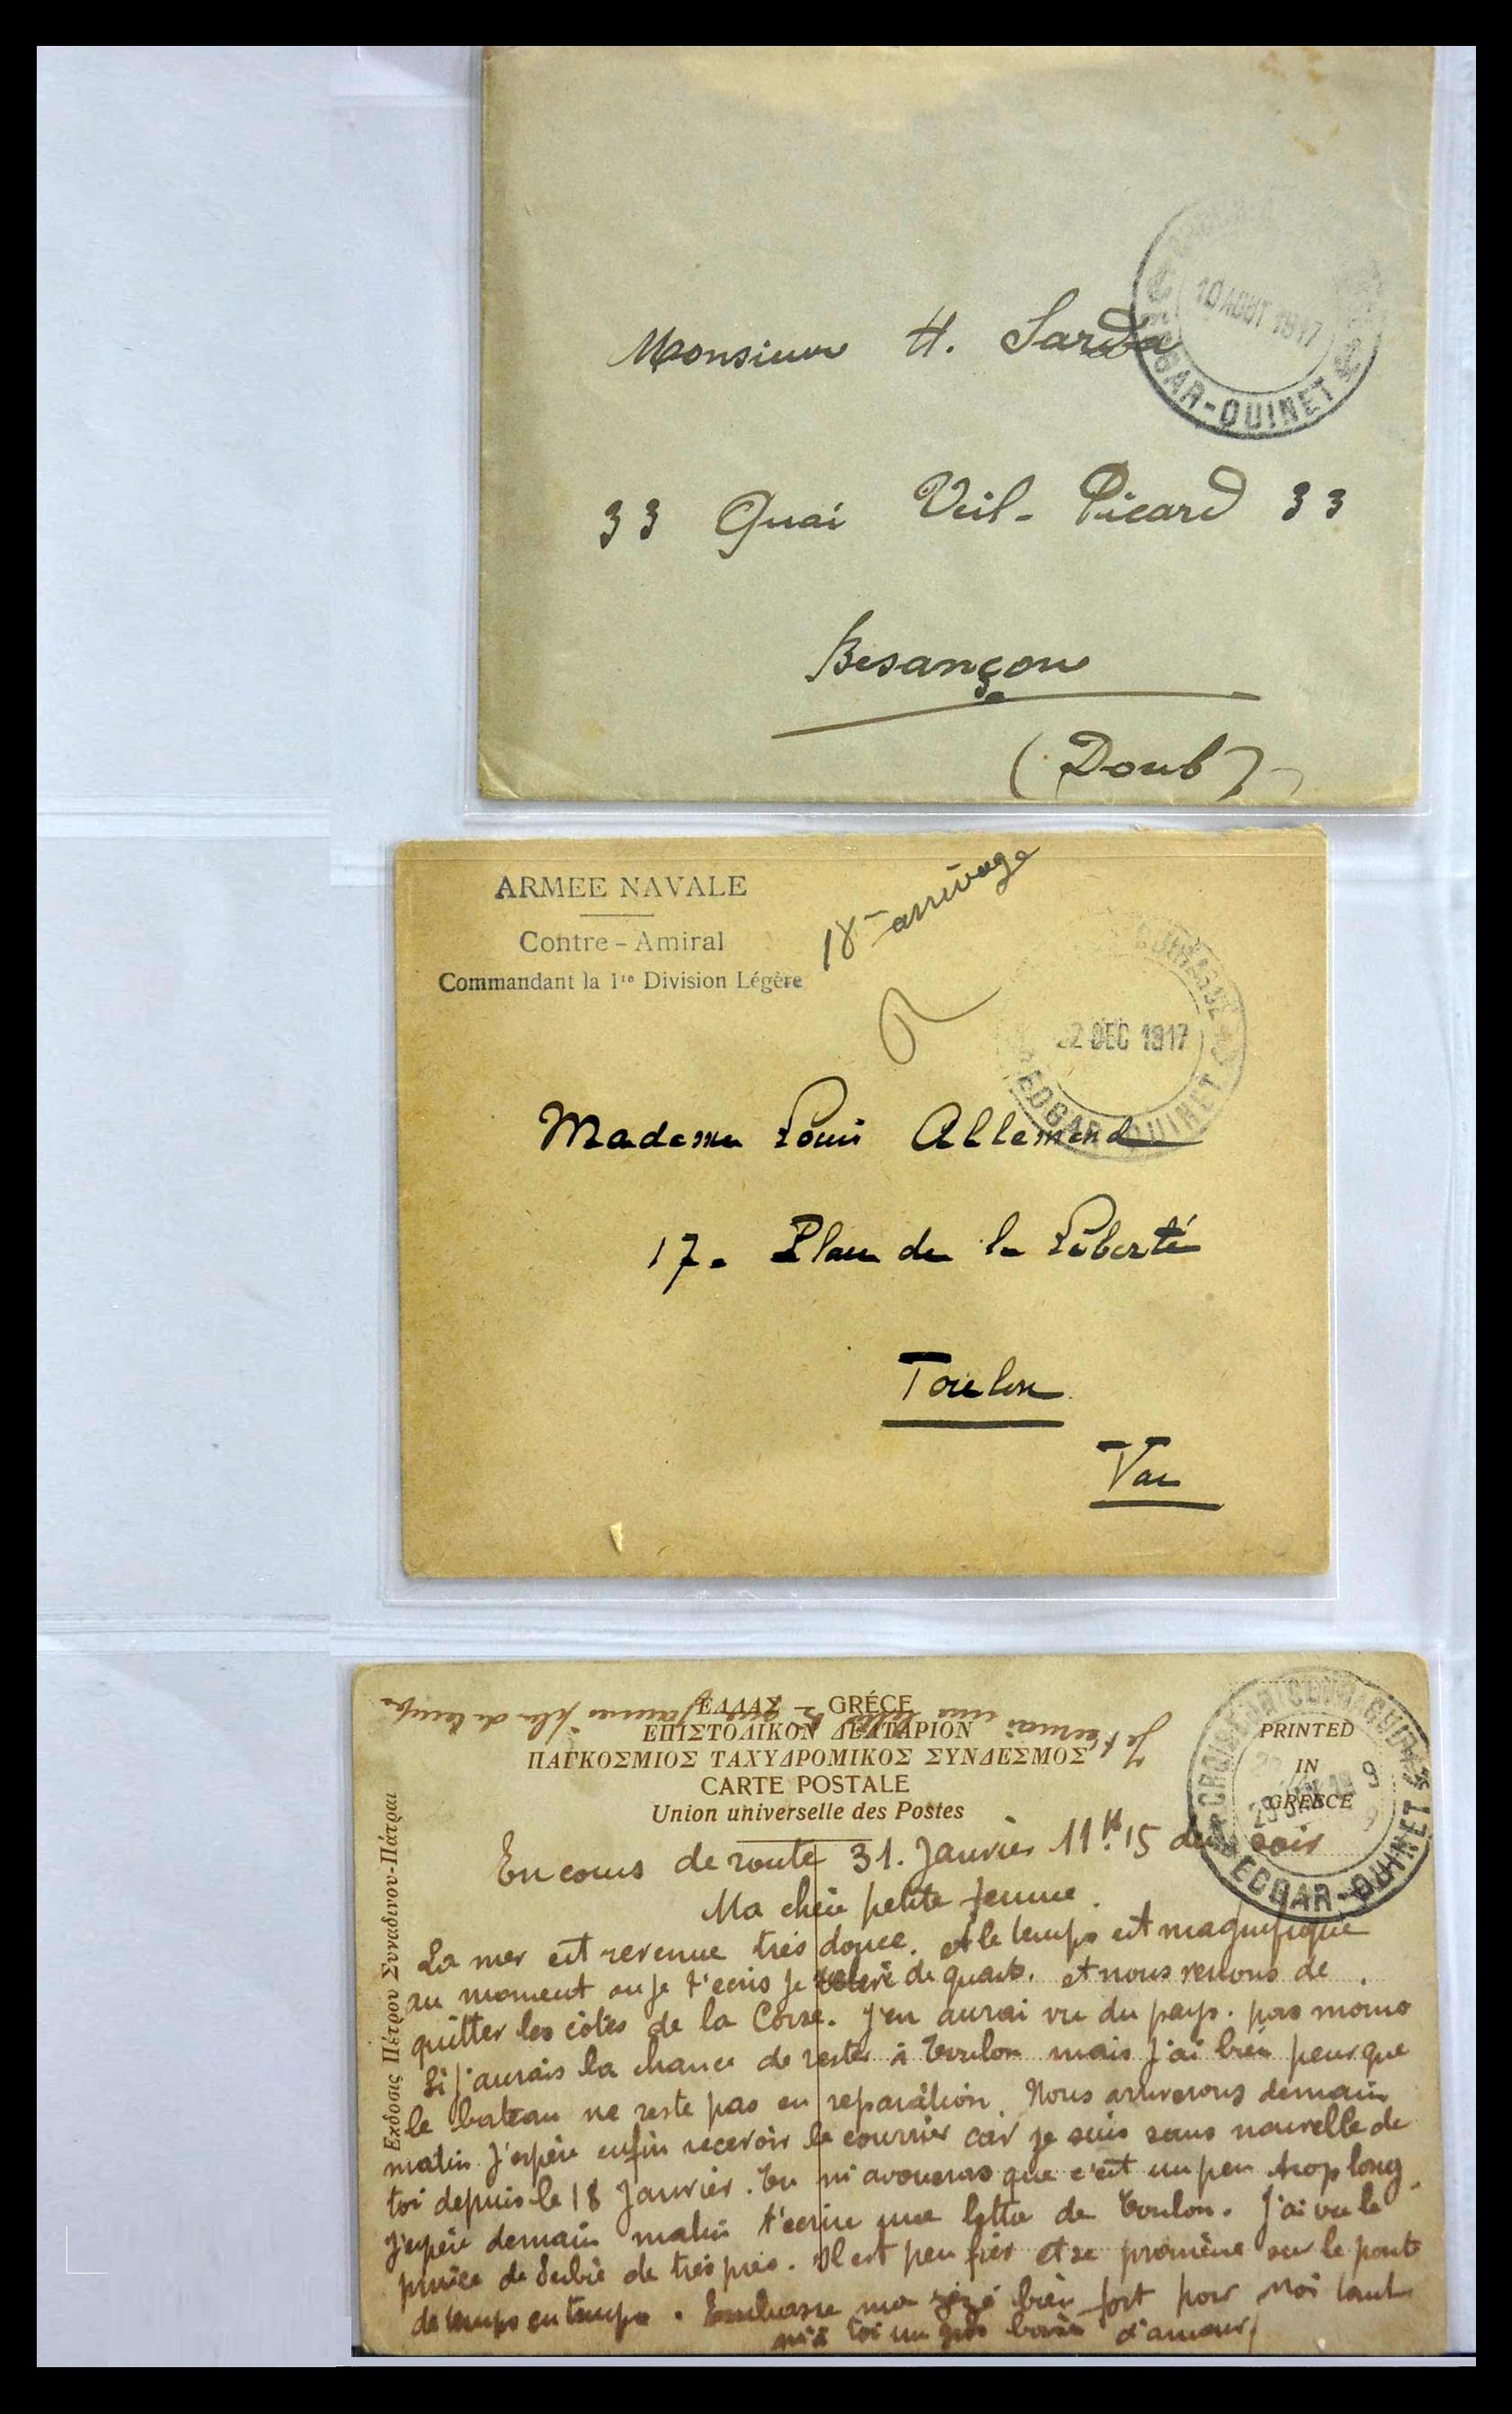 10 AOUT 1917
EDGAR-QUINET
Monsieur H. Sarda
33 Quai Veil-Picard 33
Besançon
(Doub)
ARMEE NAVALE
Contre-Amiral
Commandant la 1re Division Légère
18 arrivage
CUIRASSE
22 DEC 1917
EDGAR-QUINET
Madame Louis Allemand
17. Place de la Liberté
Toulon
Var
ΕΛΛΑΣ — GRÉCE
ΕΠΙΣΤΟΛΙΚΟΝ ΔΕΛΤΑΡΙΟΝ
ΠΑΓΚΟΣΜΙΟΣ ΤΑΧΥΔΡΟΜΙΚΟΣ ΣΥΝΔΕΣΜΟΣ
CARTE POSTALE
Union universelle des Postes
PRINTED
IN
GREECE
CROISEUR CUIRASSE
EDGAR-QUINET
Εκδοσις Πέτρου Συναδινου-Πάτραι
Je t'écrirai une plus de temps
En cours de route 31. Janvier 11h.15 du soir
Ma chère petite femme.
La mer est revenue très douce. et le temps est magnifique
au moment ou je t'ecris je de quart. et nous venons de
quitter les côtes de la Corse. J'en aurai vu du pays. pas moins
Si j'aurais la chance de rester à Toulon mais j'ai bien peur que
le bateau ne reste pas en reparation. Nous arriverons demain
matin J'espère enfin recevoir le courrier car je suis sans nouvelle de
toi depuis le 18 Janvier. Tu m'avoueras que c'est un peu trop long.
J'espère demain matin t'écrire une lettre de Toulon. J'ai vu le
prince de Serbie de très près. Il est peu fier et se promène sur le pont
de temps en temps. Embrasse ma bien fort pour moi
toi un gros baiser d'amour